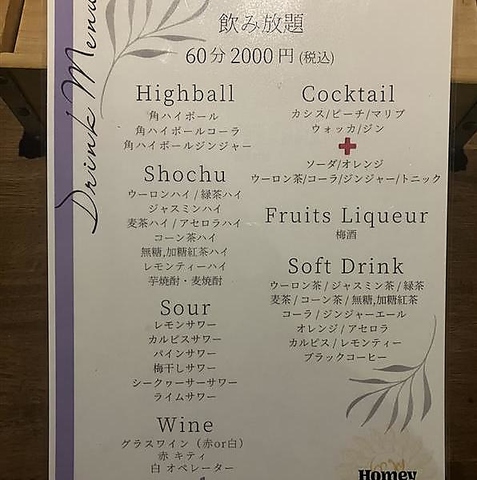 Drink Menu
飲み放題
60分 2000円 (税込)
Highball
角ハイボール
角ハイボールコーラ
角ハイボールジンジャー
Shochu
ウーロンハイ / 緑茶ハイ
ジャスミンハイ
麦茶ハイ / アセロラハイ
コーン茶ハイ
無糖,加糖紅茶ハイ
レモンティーハイ
芋焼酎・麦焼酎
Sour
レモンサワー
カルピスサワー
パインサワー
梅干しサワー
シークヮーサーサワー
ライムサワー
Wine
グラスワイン（赤or白）
赤 キティ
白 オペレーター
Cocktail
カシス/ピーチ/マリブ
ウォッカ/ジン
+
ソーダ/オレンジ
ウーロン茶/コーラ/ジンジャー/トニック
Fruits Liqueur
梅酒
Soft Drink
ウーロン茶 / ジャスミン茶 / 緑茶
麦茶 / コーン茶 / 無糖,加糖紅茶
コーラ / ジンジャーエール
オレンジ / アセロラ
カルピス / レモンティー
ブラックコーヒー
Homey